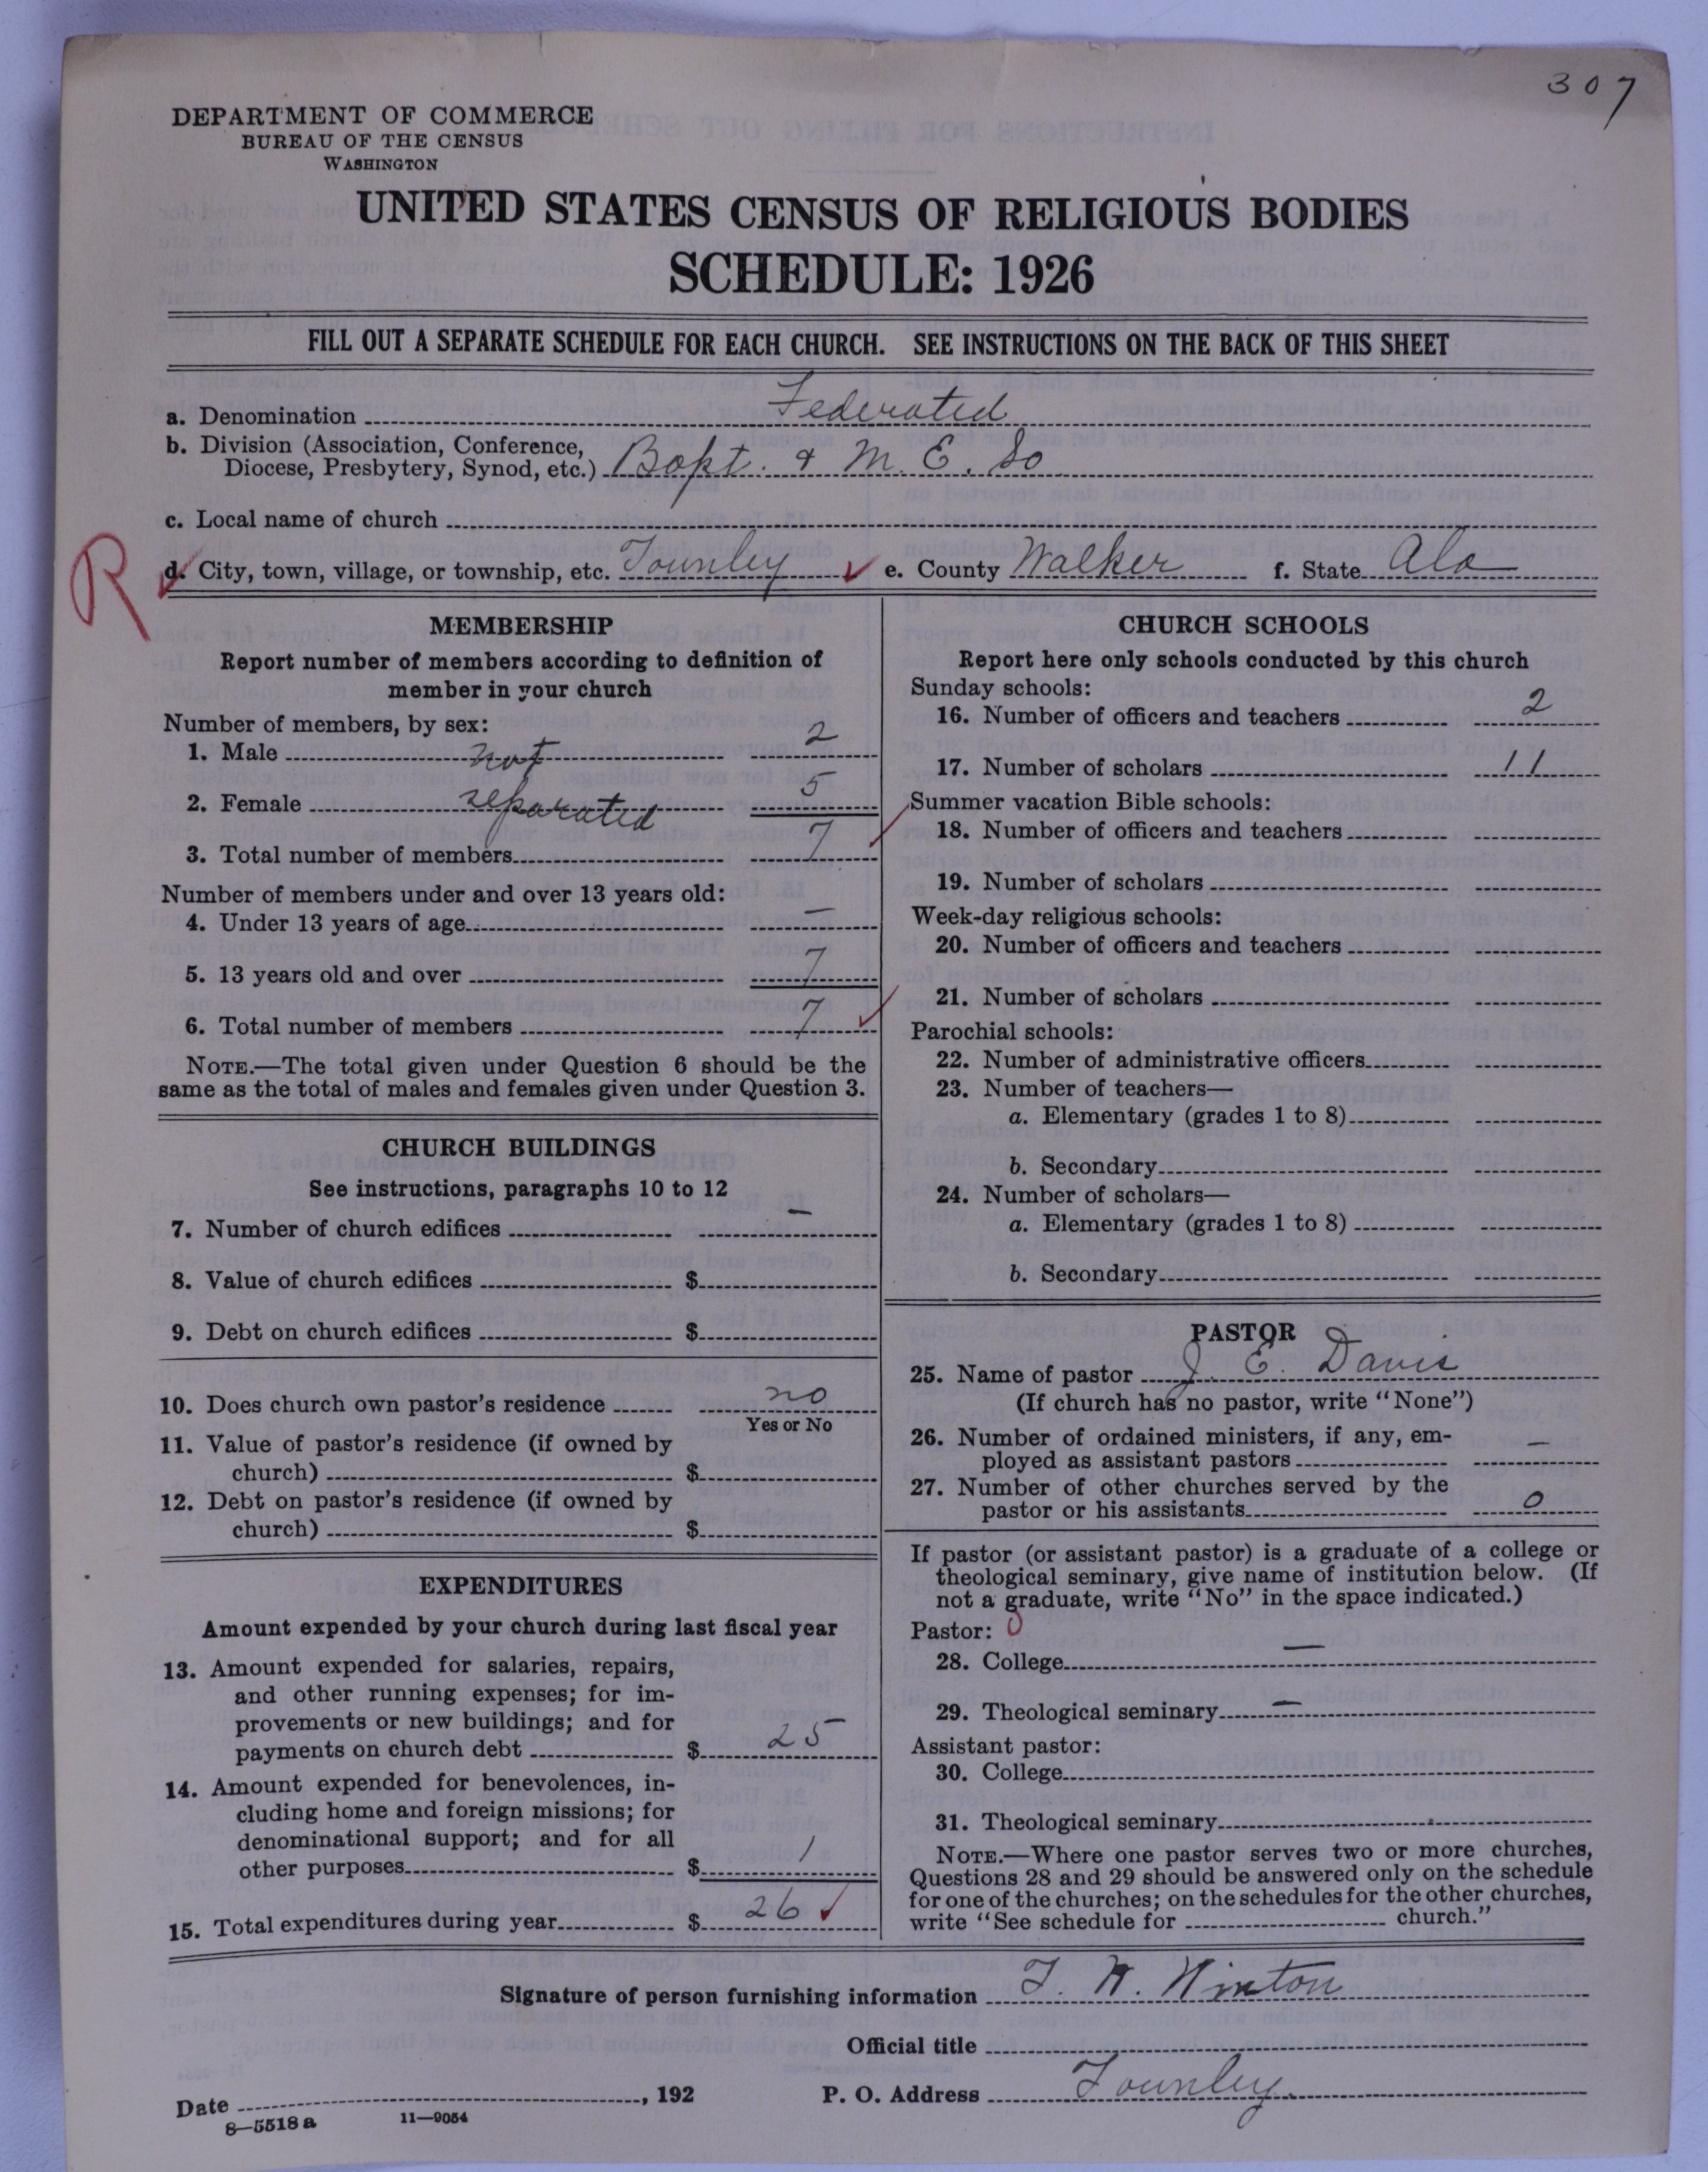 307
DEPARTMENT OF COMMERCE
BUREAU OF THE CENSUS
WASHINGTON
UNITED STATES CENSUS OF RELIGIOUS BODIES
SCHEDULE: 1926
FILL OUT A SEPARATE SCHEDULE FOR EACH CHURCH. SEE INSTRUCTIONS ON THE BACK OF THIS SHEET
a. Denomination Federated
b. Division (Association, Conference,
Diocese, Presbytery, Synod, etc.) Bapt. & M. E. So
c. Local name of church
R
d. City, town, village, or township, etc. Townley e. County Walker f. State Ala
MEMBERSHIP
Report number of members according to definition of
member in your church
Number of members, by sex:
1. Male not 2
2. Female separated 5
3. Total number of members 7
Number of members under and over 13 years old:
4. Under 13 years of age —
5. 13 years old and over 7
6. Total number of members 7
NOTE.—The total given under Question 6 should be the
same as the total of males and females given under Question 3.
CHURCH BUILDINGS
See instructions, paragraphs 10 to 12
7. Number of church edifices —
8. Value of church edifices $
9. Debt on church edifices $
10. Does church own pastor's residence no
Yes or No
11. Value of pastor's residence (if owned by
church) $
12. Debt on pastor's residence (if owned by
church) $
EXPENDITURES
Amount expended by your church during last fiscal year
13. Amount expended for salaries, repairs,
and other running expenses; for im-
provements or new buildings; and for
payments on church debt $ 25
14. Amount expended for benevolences, in-
cluding home and foreign missions; for
denominational support; and for all
other purposes $ 1
15. Total expenditures during year $ 26
CHURCH SCHOOLS
Report here only schools conducted by this church
Sunday schools:
16. Number of officers and teachers 2
17. Number of scholars 11
Summer vacation Bible schools:
18. Number of officers and teachers
19. Number of scholars
Week-day religious schools:
20. Number of officers and teachers
21. Number of scholars
Parochial schools:
22. Number of administrative officers
23. Number of teachers—
a. Elementary (grades 1 to 8)
b. Secondary
24. Number of scholars—
a. Elementary (grades 1 to 8)
b. Secondary
PASTOR
25. Name of pastor J. E. Davis
(If church has no pastor, write "None")
26. Number of ordained ministers, if any, em-
ployed as assistant pastors —
27. Number of other churches served by the
pastor or his assistants 0
If pastor (or assistant pastor) is a graduate of a college or
theological seminary, give name of institution below. (If
not a graduate, write "No" in the space indicated.)
Pastor: 0
28. College —
29. Theological seminary —
Assistant pastor:
30. College
31. Theological seminary
NOTE.—Where one pastor serves two or more churches,
Questions 28 and 29 should be answered only on the schedule
for one of the churches; on the schedules for the other churches,
write "See schedule for church."
Signature of person furnishing information
Official title
Date , 192 P. O. Address Townley
8—5518 a 11—9054